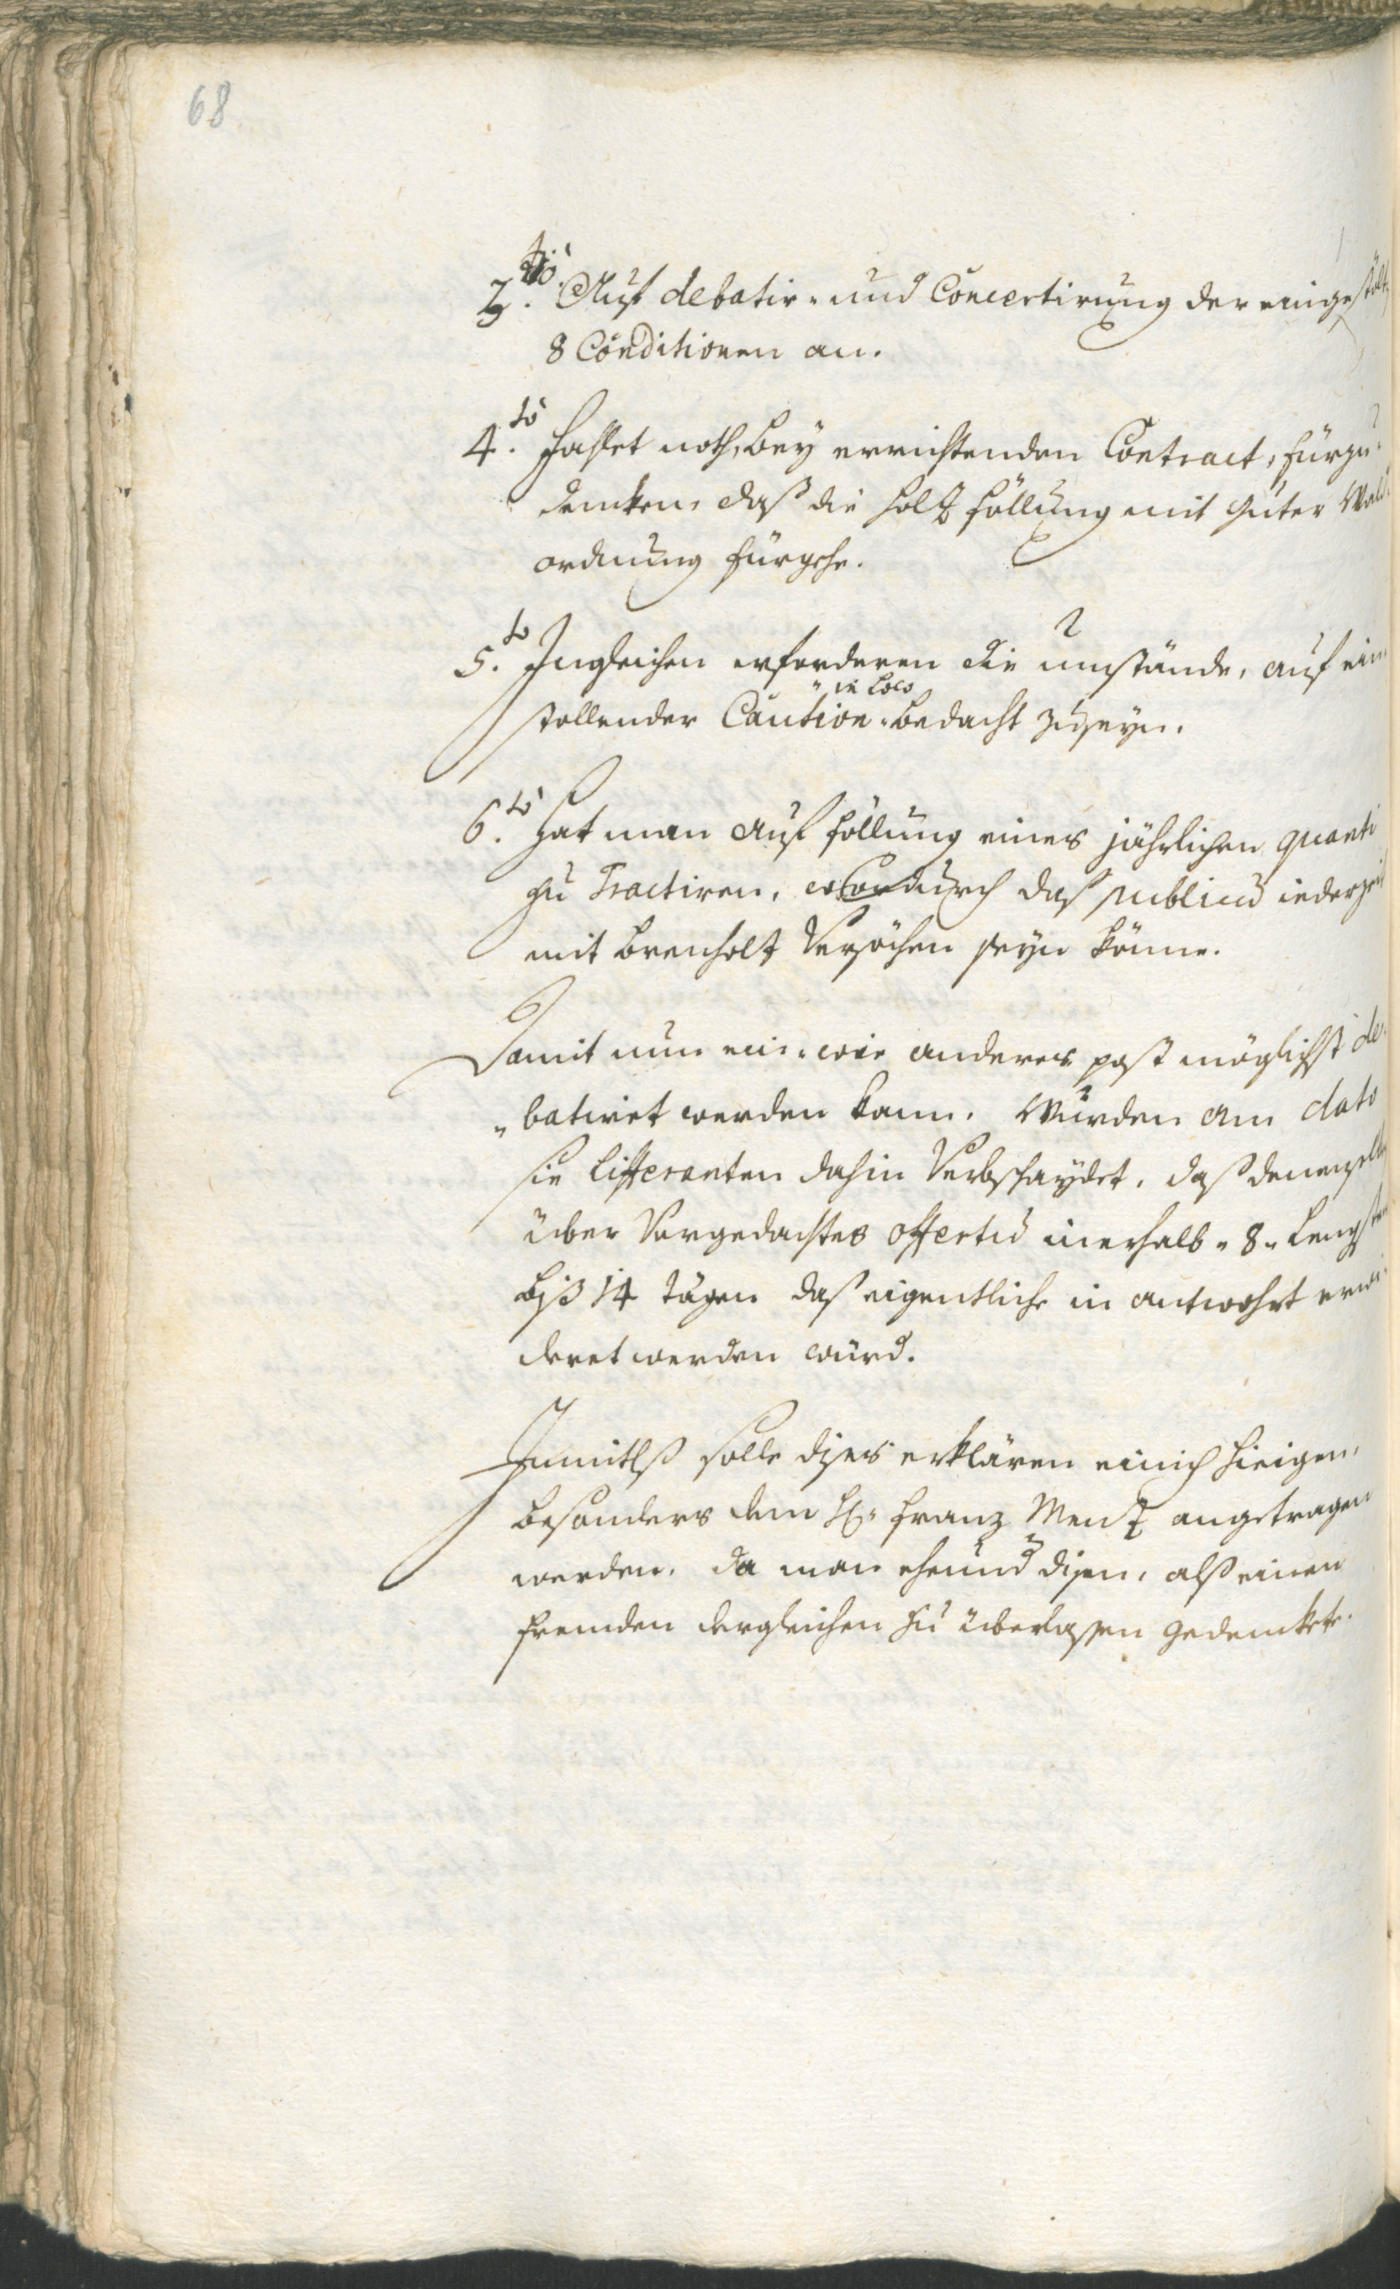 68
3.tio Auf debatir- und Concertirung der eingestölt
8 Conditionen an.
4.to Haftet noth, bey errichtenden Contract, fürzu-
dencken, daß die holtz föllung mit guter Wald
ordnung fürgehe.
5.to Ingleichen erforderen die umstände, auf ein
" in Loco
stellender Caution bedacht zuseyn.
6.to Hat man auf föllung eines jährlichen quanti
zu Tractiren, wordurch daß publicu iederzeit
mit brenholtz Versöhen seyn könne.
Damit nun ein- wie anderes post möglichst de-
"batiret werden kann. Wurden am dato
sie Lifferanten dahin Verbschaydet, daß denenselben
über Vorgedachtes offertu inerhalb "8" Lengsten
biß 14 tägen daß eigentliche in antwohrt erwi-
deret werden würd.
Inmitlß solle dises erklären einich hieigen,
besonders dem H: Franz Mentz angetragen
werden, da man eheund disen, alß einen
fremden dergleichen zu überlassen gedenckete.